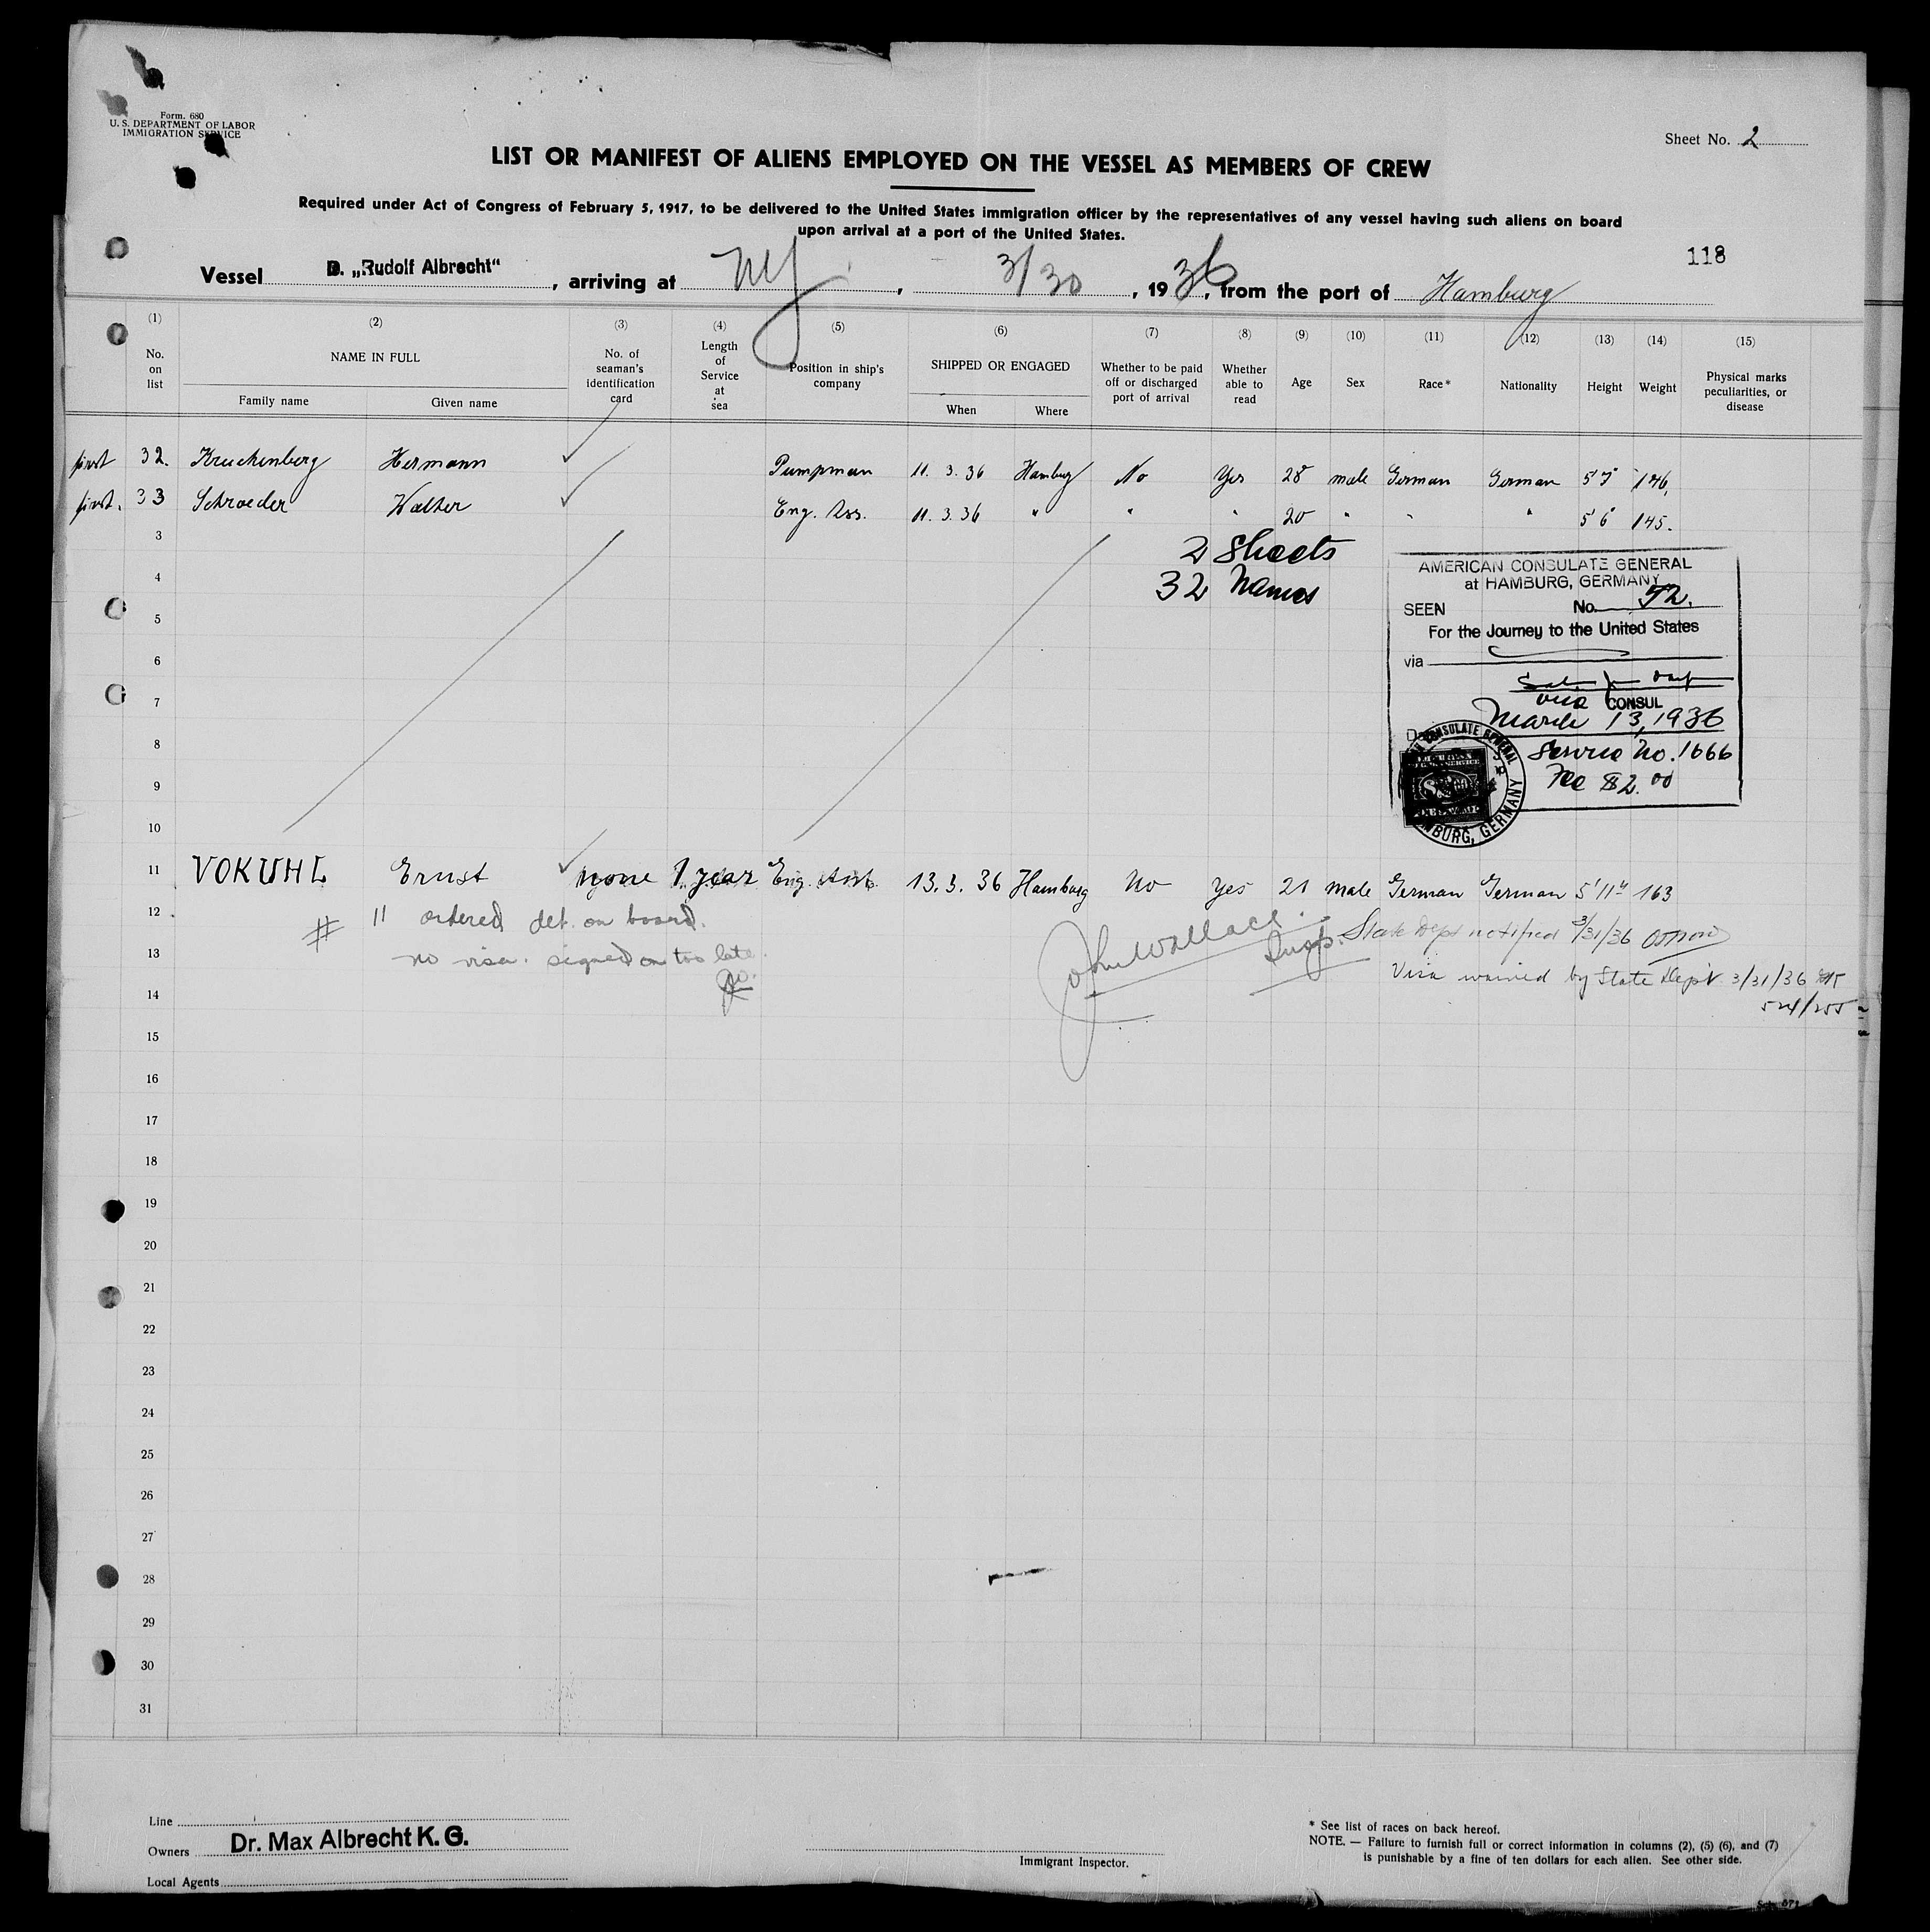 Form. 680
U. S. DEPARTMENT OF LABOR
IMMIGRATION SERVICE
Sheet No. 2
LIST OR MANIFEST OF ALIENS EMPLOYED ON THE VESSEL AS MEMBERS OF CREW
Required under Act of Congress of February 5, 1917, to be delivered to the United States immigration officer by the representatives of any vessel having such aliens on board
upon arrival at a port of the United States.
118
Vessel D. „Rudolf Albrecht“, arriving at NY, 3/30, 1936, from the port of Hamburg
(1) (2) (3) (4) (5) (6) (7) (8) (9) (10) (11) (12) (13) (14) (15)
No. on list
NAME IN FULL
Family name Given name
No. of seaman's identification card
Length of Service at sea
Position in ship's company
SHIPPED OR ENGAGED
When Where
Whether to be paid off or discharged port of arrival
Whether able to read
Age
Sex
Race*
Nationality
Height
Weight
Physical marks peculiarities, or disease
first 32. Kruckenberg Hermann Pumpman 11. 3. 36 Hamburg No Yes 28 male German German 5'7" 146,
first. 33 Schroeder Walter Eng. Ass. 11. 3. 36 " " " 20 " " " 5'6" 145.
3
2 Sheets
4
32 Names
5
6
7
8
9
10
AMERICAN CONSULATE GENERAL
at HAMBURG, GERMANY
SEEN No. 52.
For the Journey to the United States
via
vice CONSUL
March 13, 1936
Service No. 1066
Fee $2.00
CONSULATE GENERAL
HAMBURG, GERMANY
11 VOKUHL Ernst none 1 year Eng. Asst. 13. 3. 36 Hamburg No yes 21 male German German 5'11" 163
12
# 11 ordered det. on board.
John Wallach Insp.
State Dept notified 3/31/36
13
no visa. signed on too late.
Visa waived by State Dept 3/31/36
14
15
16
17
18
19
20
21
22
23
24
25
26
27
28
29
30
31
Line
Owners Dr. Max Albrecht K. G.
Local Agents
Immigrant Inspector.
* See list of races on back hereof.
NOTE. — Failure to furnish full or correct information in columns (2), (5) (6), and (7)
is punishable by a fine of ten dollars for each alien. See other side.